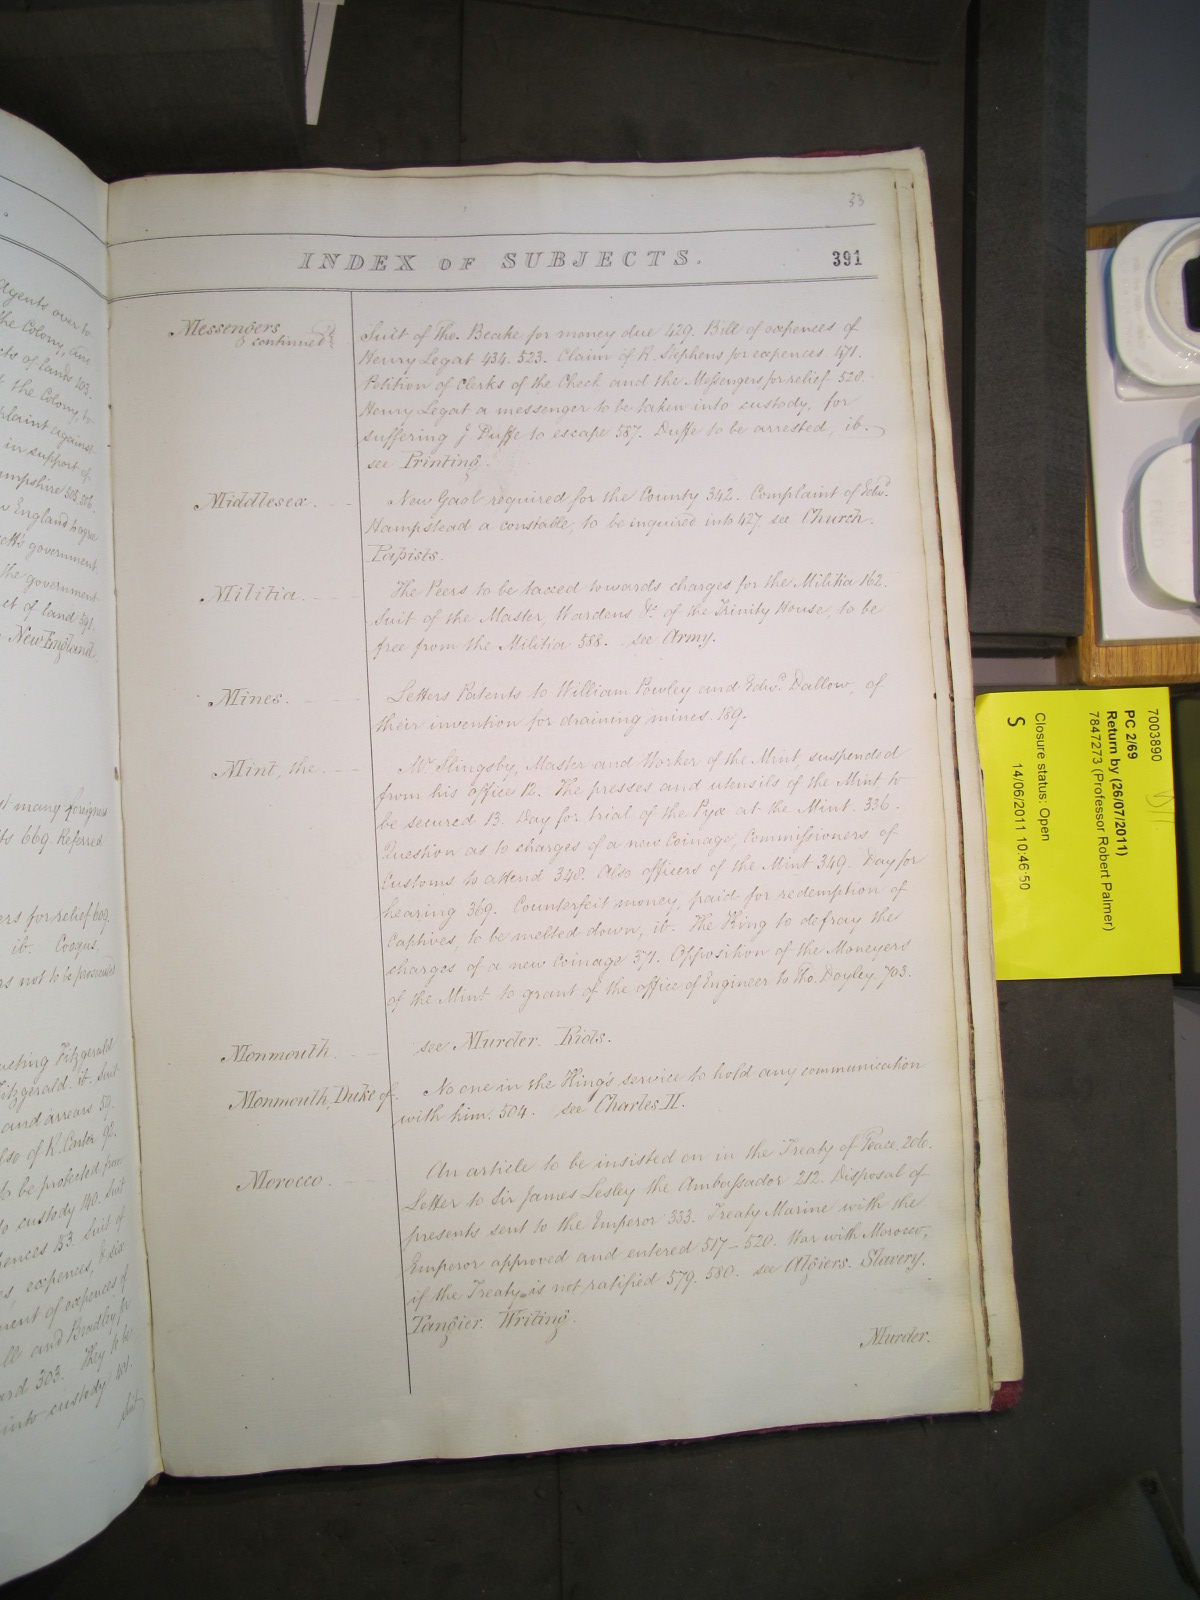 33
INDEX OF SUBJECTS.
391
Messengers continued
Suit of Tho. Beake for money due 429. Bill of expences of
Henry Legat 434. 523. Claim of R. Stephens for expences. 471.
Petition of Clerks of the Check and the Messengers for relief 528.
Henry Legat a messenger to be taken into custody, for
suffering J. Duffe to escape 587. Duffe to be arrested, ib.
see Printing.
Middlesex.
New Gaol required for the County 342. Complaint of Edwd.
Hampstead a constable, to be inquired into 427. see Church.
Papists.
Militia.
The Peers to be taxed towards charges for the Militia 162.
Suit of the Master, Wardens &c. of the Trinity House, to be
free from the Militia 588. see Army.
Mines.
Letters Patents to William Powley and Edwd. Dallow, of
their invention for draining mines. 189.
Mint, the.
Mr. Slingsby, Master and Worker of the Mint, suspended
from his office 12. The presses and utensils of the Mint to
be secured 13. Day for trial of the Pyx at the Mint. 336.
Question as to charges of a new Coinage, Commissioners of
Customs to attend 348. Also officers of the Mint 349. Day for
hearing 369. Counterfeit money, paid for redemption of
Captives, to be melted down, ib. The King to defray the
charges of a new Coinage 371. Opposition of the Moneyers
of the Mint to grant of the office of Engineer to Tho. Doyley. 703.
Monmouth
see Murder. Riots.
Monmouth, Duke of.
No one in the King's service to hold any communication
with him. 504. see Charles II.
Morocco.
An article to be insisted on in the Treaty of Peace. 206.
Letter to Sir James Lesley the Ambassador 212. Disposal of
presents sent to the Emperor 333. Treaty Marine with the
Emperor approved and entered 517-520. War with Morocco,
if the Treaty is not ratified 579. 580. see Algiers. Slavery.
Tangier. Writing.
Murder.
Agents over to
the Colony, and
cts of lands 103.
the Colony, to
plaint against
in support of
ampshire 505. 506.
w England to agree
ett's government
the government
ct of land 591.
New England.
many foreigners
ts 669. Referred
ers for relief 609.
ib. Cooqus,
rs not to be prosecuted
acting Fitzgerald
Fitzgerald. ib. Suit
and arrears 59.
also of R. Carter 92.
to be protected from
to custody 140. Suit
pences 153. Suit of
expences, & six
ment of expences of
ll and Bradley, to
ard 303. They to be
into custody 401.
Suit
7003890
PC 2/69
Return by (26/07/2011)
7847273 (Professor Robert Palmer)
Closure status: Open
S 14/06/2011 10:46:50